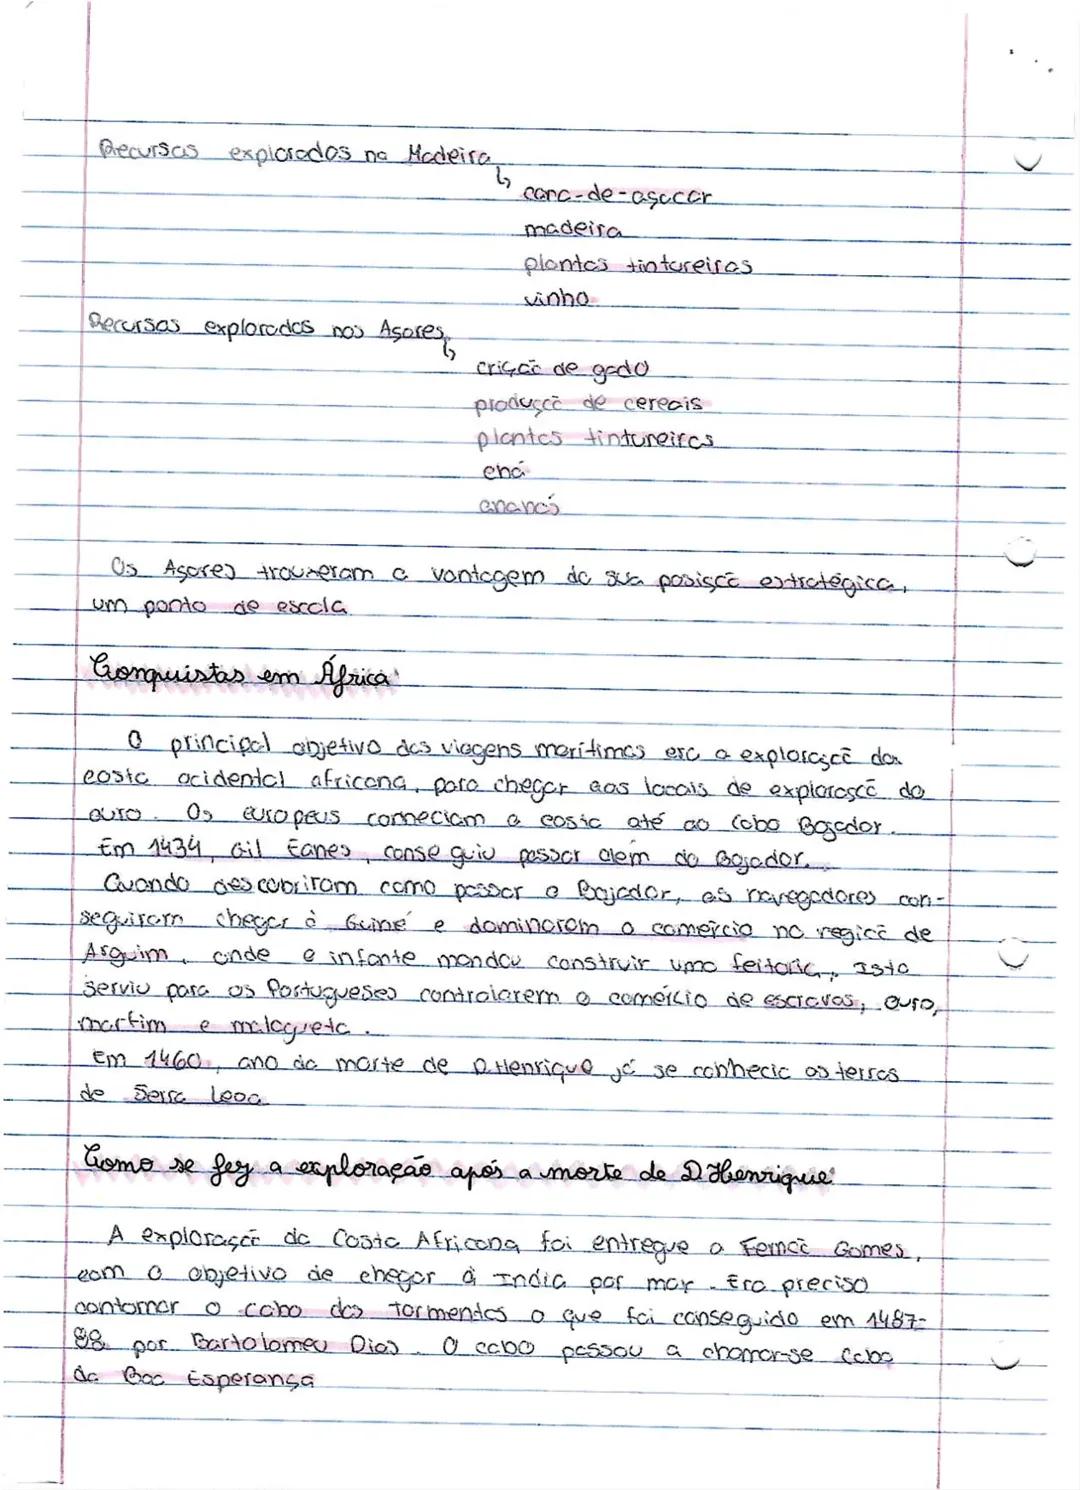 Recursos explorados na Madeira
↳ cana-de-açucar
madeira
plantas tintureiras
vinho
Recursos explorados nos Açores
↳ criação de gado
produção de cereais
plantas tintureiras
chá
ananás
Os Açores trouxeram a vantagem da sua posição estratégica,
um ponto de escala
Conquistas em África:
O principal objetivo das viagens marítimas era a exploração da
costa acidental africana, para chegar aos locais de exploração do
ouro. Os europeus conheciam a costa até ao Cabo Bojador.
Em 1434, Gil Eanes, conseguiu passar além do Bojador.
Quando descobriram como passar o Bojador, os navegadores con-
seguiram chegar à Guiné e dominaram o comércio na região de
Arguim, onde o infante mandou construir uma feitoria. Isto
serviu para os Portugueses controlarem o comércio de escravos, ouro,
marfim e malagueta.
Em 1460, ano da morte de D.Henrique já se conhecia as terras
de Serra Leoa
Como se fez a exploração após a morte de D.Henrique:
A exploração da Costa Africana foi entregue a Fernão Gomes,
com o objetivo de chegar à India por mar. Era preciso
contornar o cabo das tormentas o que foi conseguido em 1487-
88 por Bartolomeu Dias. O cabo passou a chamar-se Cabo
da Boa Esperança